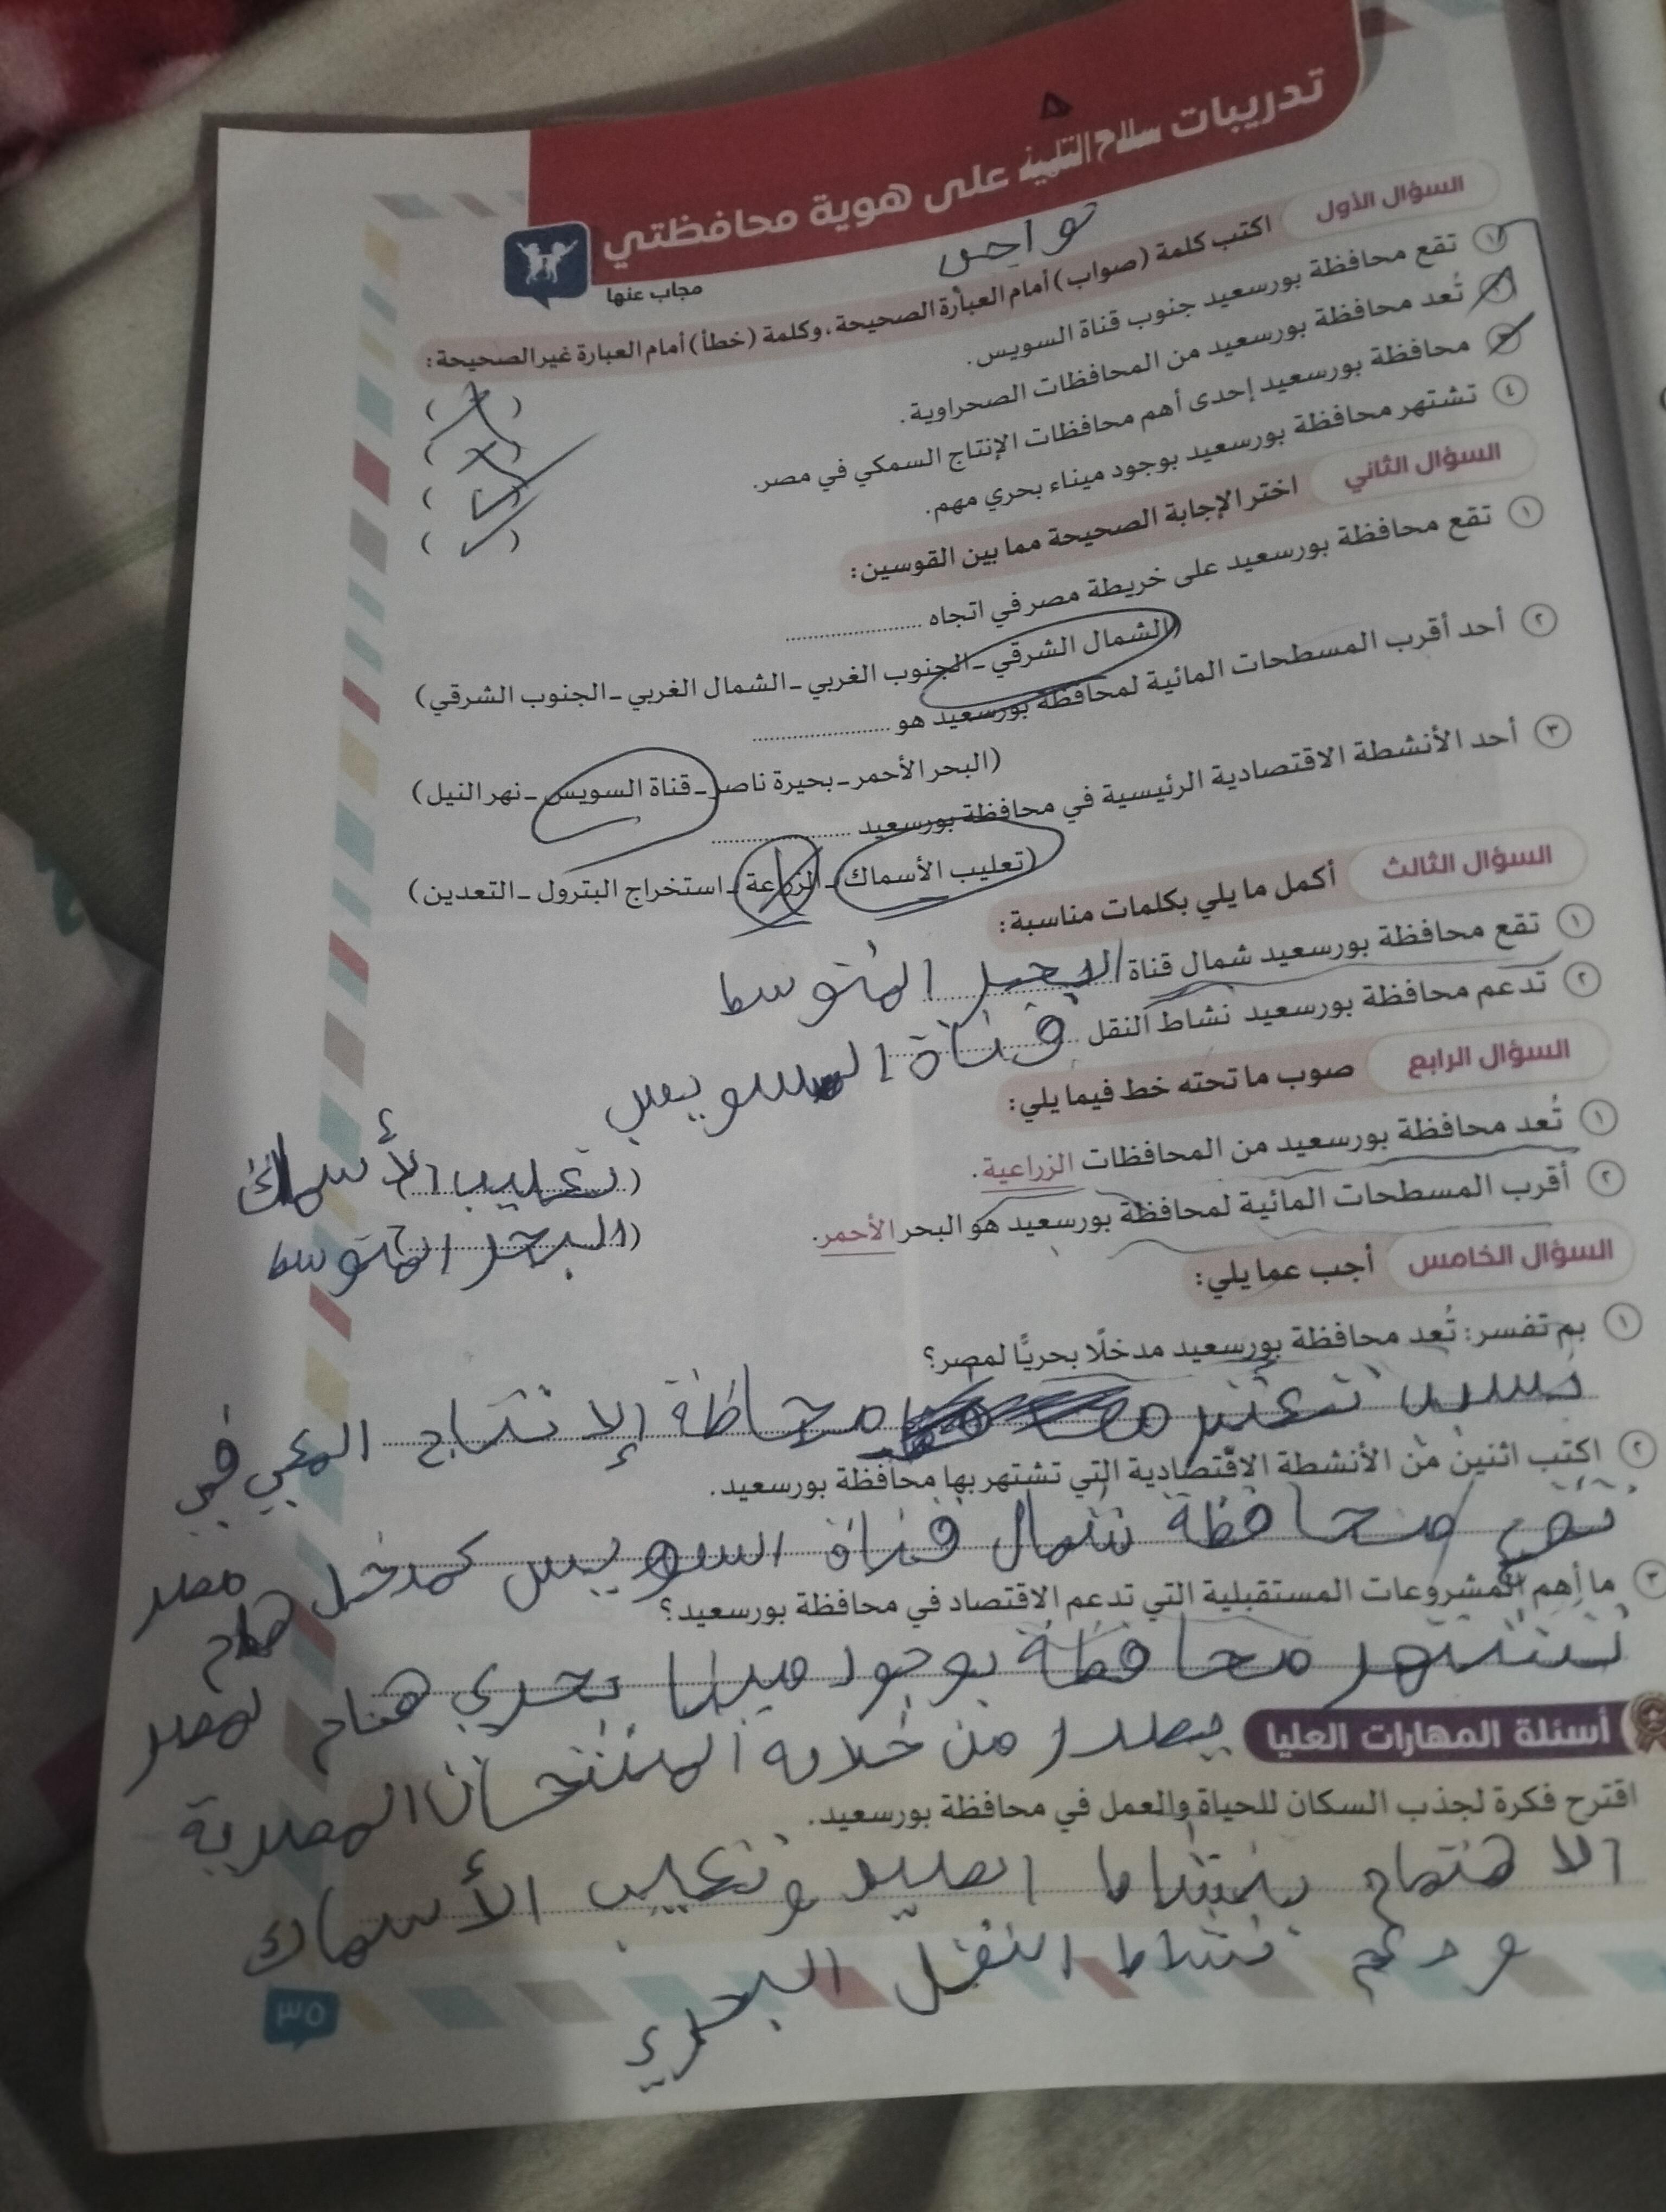 تدريبات سلاح التلميذ على هوية محافظتي
مجاب عنها
السؤال الأول اكتب كلمة (صواب) أمام العبارة الصحيحة، وكلمة (خطأ) أمام العبارة غير الصحيحة:
١ تقع محافظة بورسعيد جنوب قناة السويس. (✗)
٢ تُعد محافظة بورسعيد من المحافظات الصحراوية. (✗)
٣ محافظة بورسعيد إحدى أهم محافظات الإنتاج السمكي في مصر. (✓)
٤ تشتهر محافظة بورسعيد بوجود ميناء بحري مهم. (✓)
السؤال الثاني اختر الإجابة الصحيحة مما بين القوسين:
١ تقع محافظة بورسعيد على خريطة مصر في اتجاه ..............
(الشمال الشرقي - الجنوب الغربي - الشمال الغربي - الجنوب الشرقي)
٢ أحد أقرب المسطحات المائية لمحافظة بورسعيد هو ..............
(البحر الأحمر - بحيرة ناصر - قناة السويس - نهر النيل)
٣ أحد الأنشطة الاقتصادية الرئيسية في محافظة بورسعيد ..............
(تعليب الأسماك - الزراعة - استخراج البترول - التعدين)
السؤال الثالث أكمل ما يلي بكلمات مناسبة:
١ تقع محافظة بورسعيد شمال قناة البحر المتوسط
٢ تدعم محافظة بورسعيد نشاط النقل قناة السويس
السؤال الرابع صوب ما تحته خط فيما يلي:
١ تُعد محافظة بورسعيد من المحافظات الزراعية. (تعليب الأسماك
٢ أقرب المسطحات المائية لمحافظة بورسعيد هو البحر الأحمر. (البحر المتوسط
السؤال الخامس أجب عما يلي:
١ بم تفسر: تُعد محافظة بورسعيد مدخلًا بحريًا لمصر؟
بسبب تعتبر محاظة إلا نتاج في
٢ اكتب اثنين من الأنشطة الاقتصادية التي تشتهر بها محافظة بورسعيد.
تقع محافظة شمال قناة السويس كمدخل هام مصر
٣ ما أهم المشروعات المستقبلية التي تدعم الاقتصاد في محافظة بورسعيد؟
تشتهر محافظة بوجود مينا بحري هام لمصر
أسئلة المهارات العليا يصدر من خلاله المنتجات المصرية
اقترح فكرة لجذب السكان للحياة والعمل في محافظة بورسعيد.
الا هتمام بنشاط الصيد وتعليب الأسماك
و دعم نشاط النقل البحري
٣٥